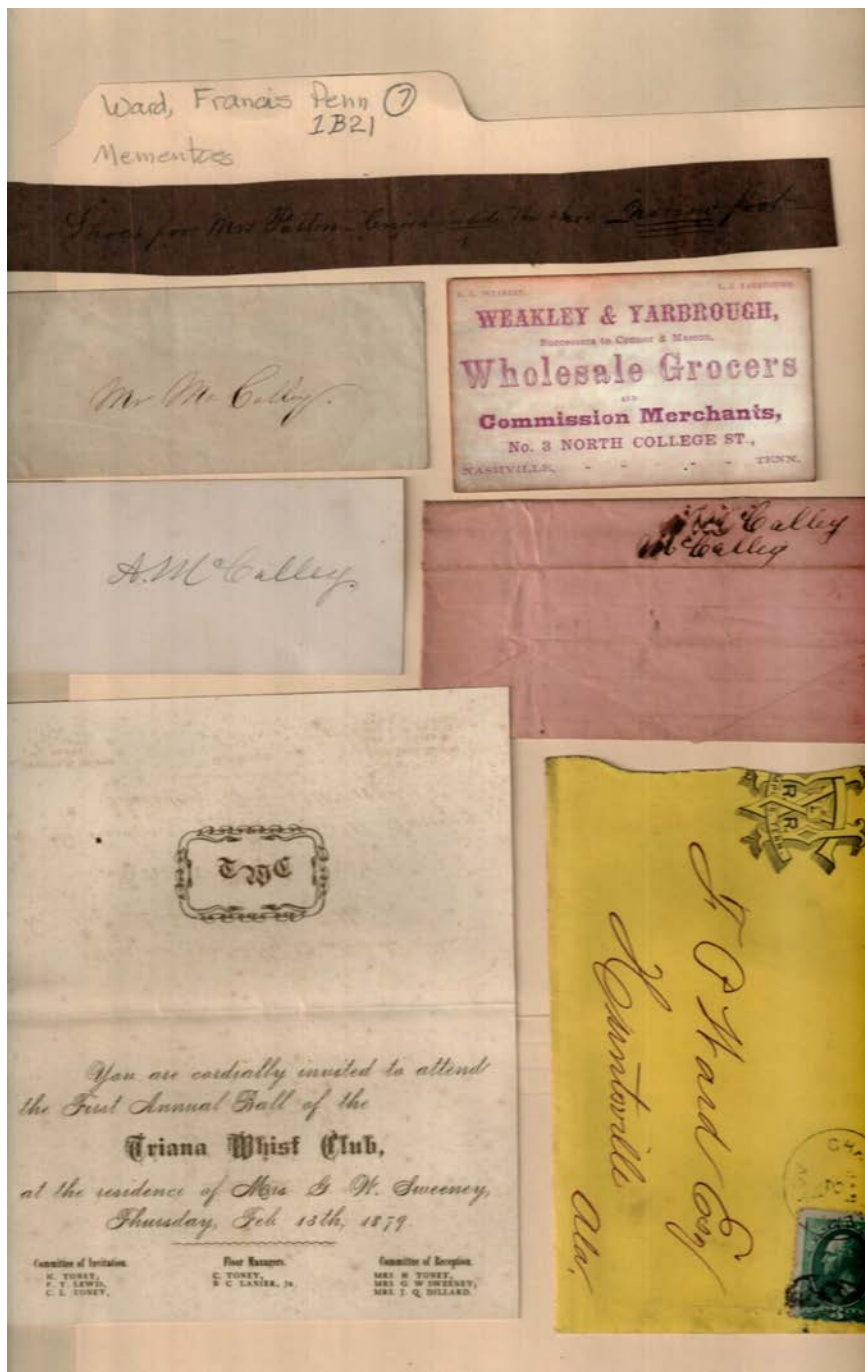 Ward, Francis Penn 7
1B21
Mementoes
Shoes for Mrs Patton
foot
Mr McCalley.
WEAKLEY & YARBROUGH,
Successors to Connor &
Wholesale Grocers
AND
Commission Merchants,
No. 3 NORTH COLLEGE ST.,
NASHVILLE, - - - - - TENN.
A. McCalley.
McCalley
McCalley
TWC
You are cordially invited to attend
the First Annual Ball of the
Triana Whist Club,
at the residence of Mrs G W. Sweeney,
Thursday, Feb 13th, 1879.
Committee of Invitation.
H. TONEY,
F. T. LEWIS,
C. L. TONEY,
Floor Managers.
C. TONEY,
B C LANIER, Jr.
Committee of Reception.
MRS H TONEY,
MRS G W SWEENEY,
MRS. J. Q. DILLARD.
R
R
F. P. Ward Esq
Huntsville
Ala,